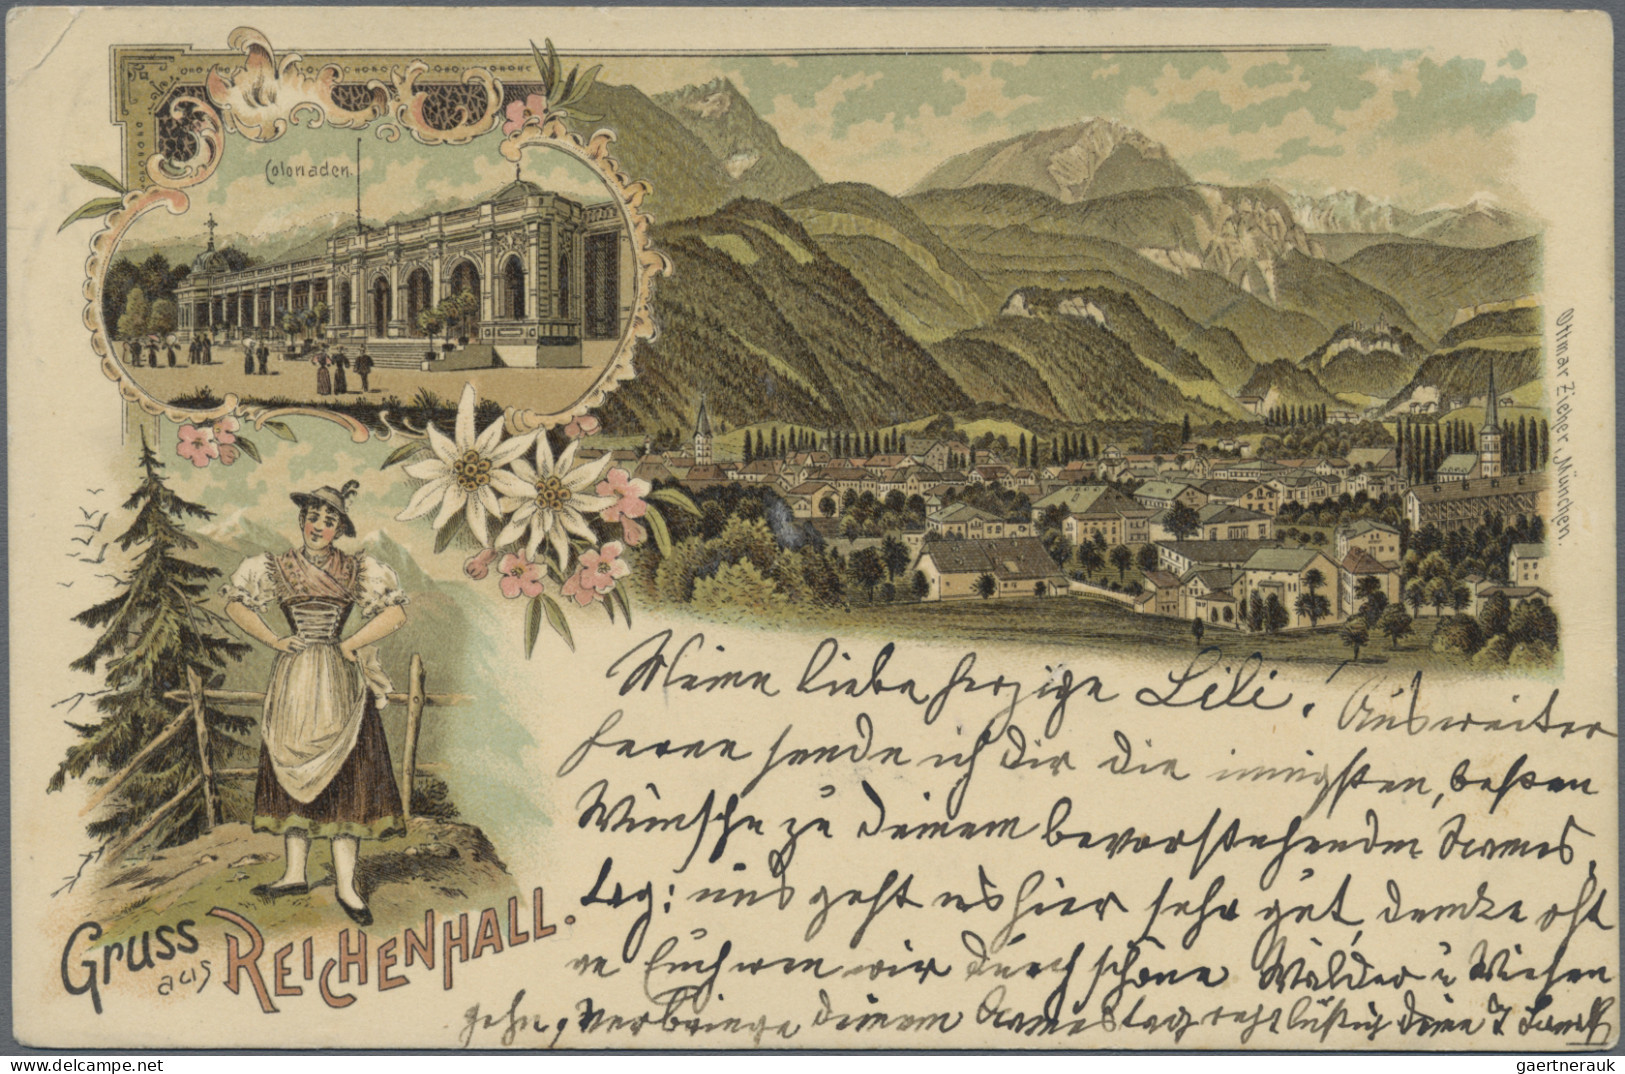 Colonaden.
Ottmar Zieher, München.
Gruss
aus REICHENHALL.
Meine liebe herzige Lili! Aus weiter
Ferne sende ich Dir die innigsten, besten
Wünsche zu Deinem bevorstehenden Namens
tag; uns geht es hier sehr gut, denke oft
an Euch wen wir durch schöne Wälder u Wiesen
gehn, verbringe Deinen Namenstag recht lustig Deine
gaertnerauk.com